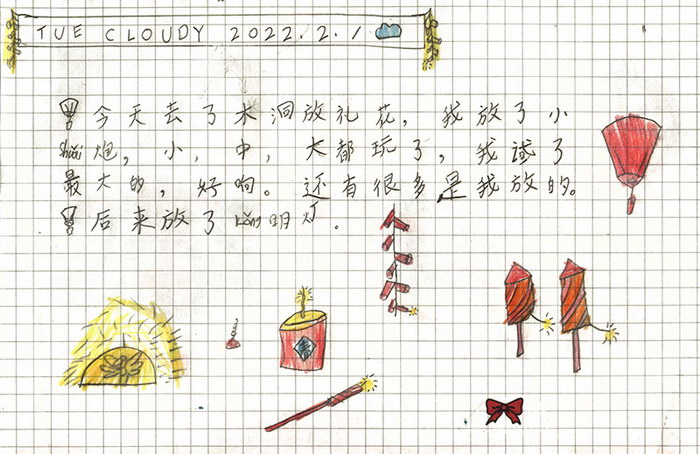 TUE CLOUDY 2022.2.1
今天去了木洞放礼花，我放了小
shuāi炮，小，中，大都玩了，我试了
最大的，好响。还有很多是我放的。
后来放了kǒng明灯.